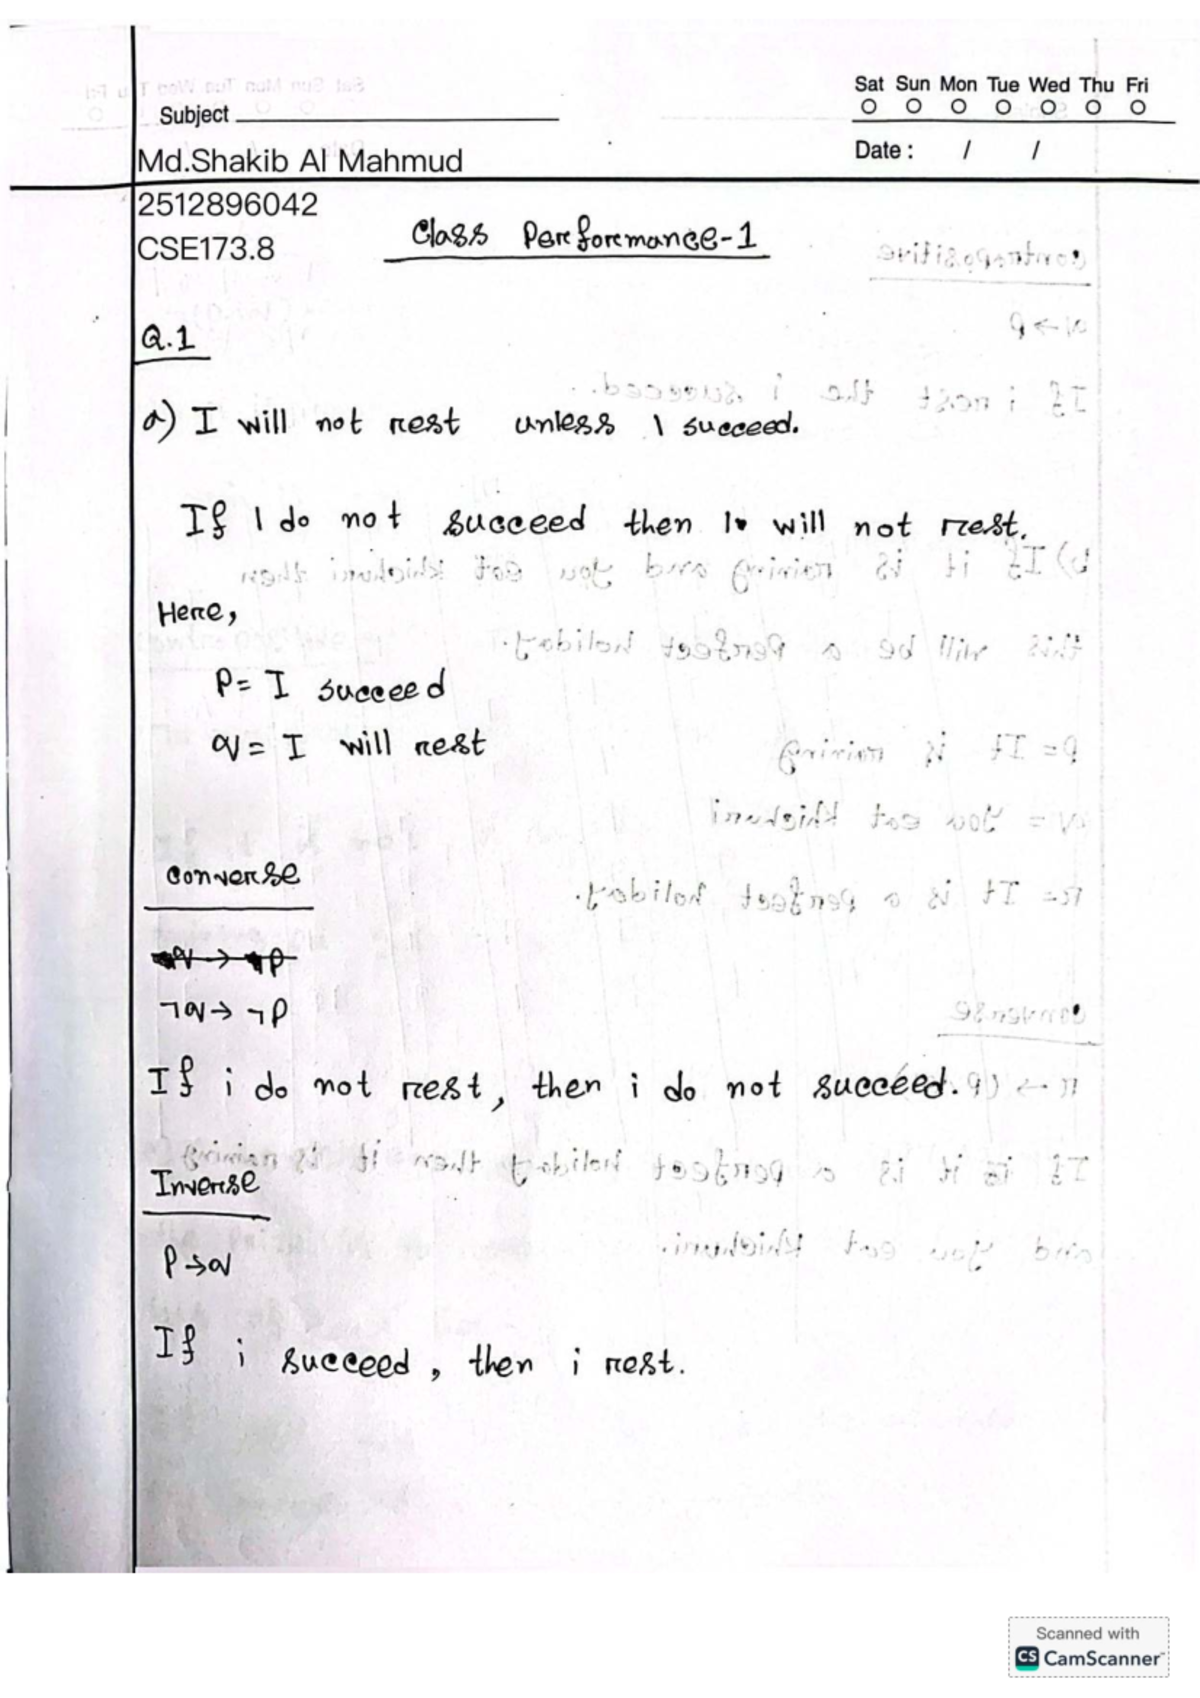 Sat Sun Mon Tue Wed Thu Fri
Subject
Date : / /
Md.Shakib Al Mahmud
2512896042
CSE173.8
Class Performance-1
Q.1
a) I will not rest unless I succeed.
If I do not succeed then I will not rest.
Here,
P = I succeed
q = I will rest
Converse
¬q → ¬P
If i do not rest, then i do not succeed.
Inverse
P → q
If i succeed, then i rest.
Scanned with
CS CamScanner